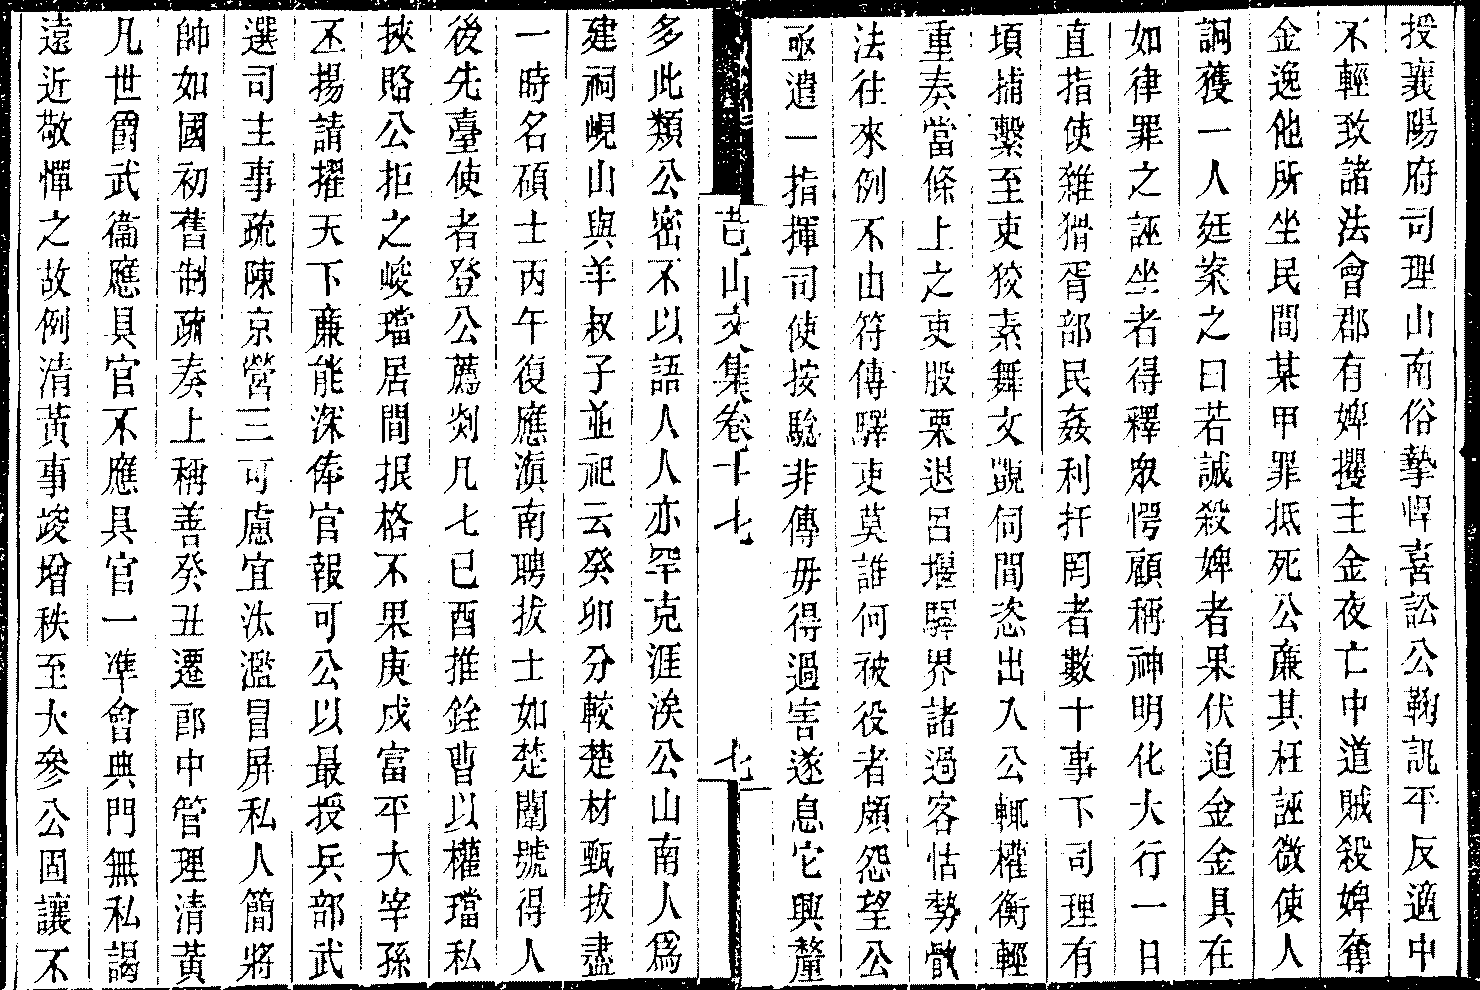 授襄陽府司理山南俗摯悍喜訟公鞠訊平反適中
不輕致諸法會郡有婢攫主金夜亡中道賊殺婢奪
金逸他所坐民間某甲罪抵死公廉其枉誣微使人
詗獲一人廷案之曰若誠殺婢者果伏迫金金具在
如律罪之誣坐者得釋眾愕顧稱神明化大行一日
直指使雜猾胥部民姦利扞罔者數十事下司理有
項捕繫至吏狡素舞文覬伺間恣出入公輒權衡輕
重奏當條上之吏股栗退呂堰驛界諸過客怙勢骩
法往來例不由符傳驛吏莫誰何被役者頗怨望公
亟遣一指揮司使按驗非傳毋得過害遂息它興釐
芑山文集卷十七
七
多此類公密不以語人人亦罕克涯涘公山南人爲
建祠峴山與羊叔子並祀云癸卯分較楚材甄拔盡
一時名碩士丙午復應滇南聘拔士如楚闈號得人
後先臺使者登公薦剡凡七已酉推銓曹以權璫私
挾賂公拒之峻璫居間抿格不果庚戌富平大宰孫
丕揚請擢天下廉能深俸官報可公以最授兵部武
選司主事疏陳京營三可慮宜汰濫冒屏私人簡將
帥如國初舊制疏奏上稱善癸丑遷郎中管理清黃
凡世爵武衞應具官不應具官一準會典門無私謁
遠近敬憚之故例清黃事竣增秩至大參公固讓不